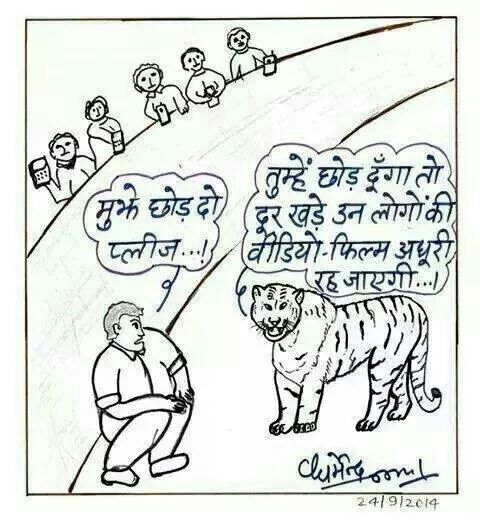 मुझे छोड़ दो
प्लीज...!
तुम्हें छोड़ दूँगा तो
दूर खड़े उन लोगों की
वीडियो-फिल्म अधूरी
रह जाएगी...!
24/9/2014